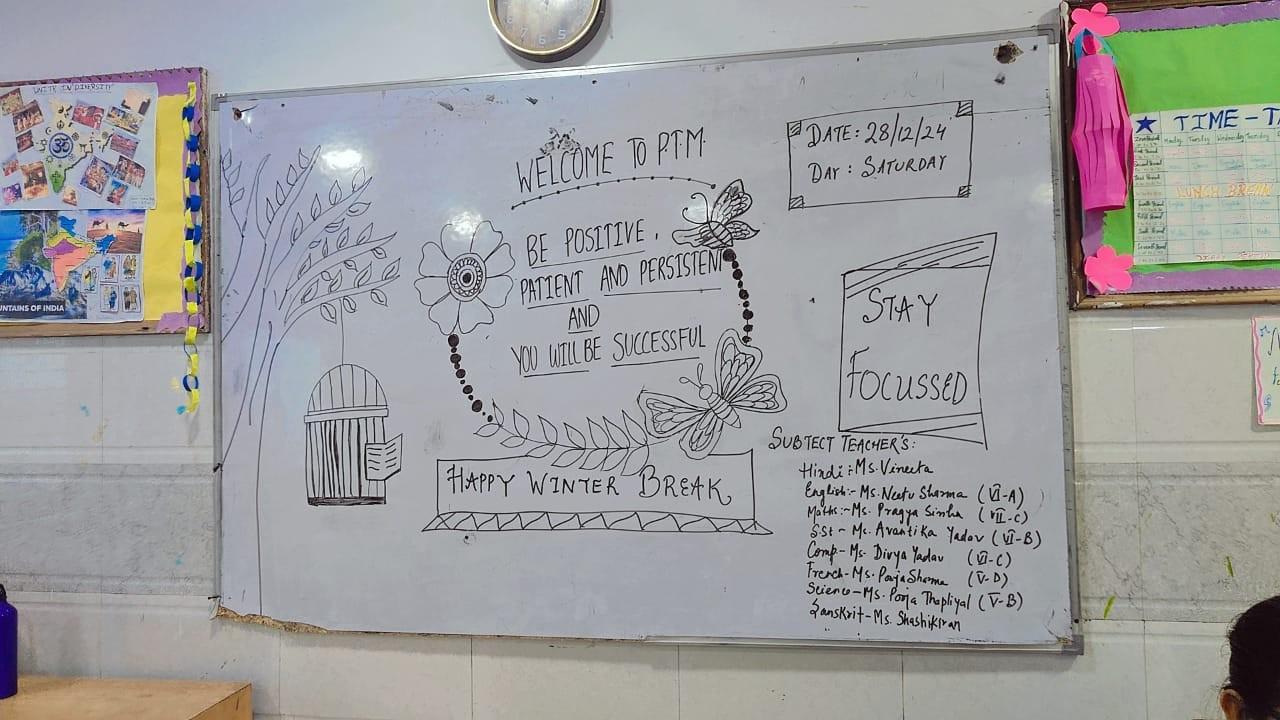 UNITY IN DIVERSITY
MOUNTAINS OF INDIA
7 6 5
WELCOME TO P.T.M.
DATE: 28/12/24
DAY: SATURDAY
BE POSITIVE,
PATIENT AND PERSISTENT
AND
YOU WILL BE SUCCESSFUL
STAY
FOCUSSED
HAPPY WINTER BREAK
SUBTECT TEACHER'S:
Hindi:- Ms. Vineeta
English:- Ms. Neetu Sharma (VI-A)
Maths:- Ms. Pragya Sinha (VII-C)
S.St - Ms. Avantika Yadav (VI-B)
Comp - Ms. Divya Yadav (VI-C)
French - Ms. Pooja Sharma (V-D)
Science - Ms. Pooja Thapliyal (V-B)
Sanskrit - Ms. Shashikiran
TIME-T
Tuesday Wednesday Thursday
LUNCH BREAK